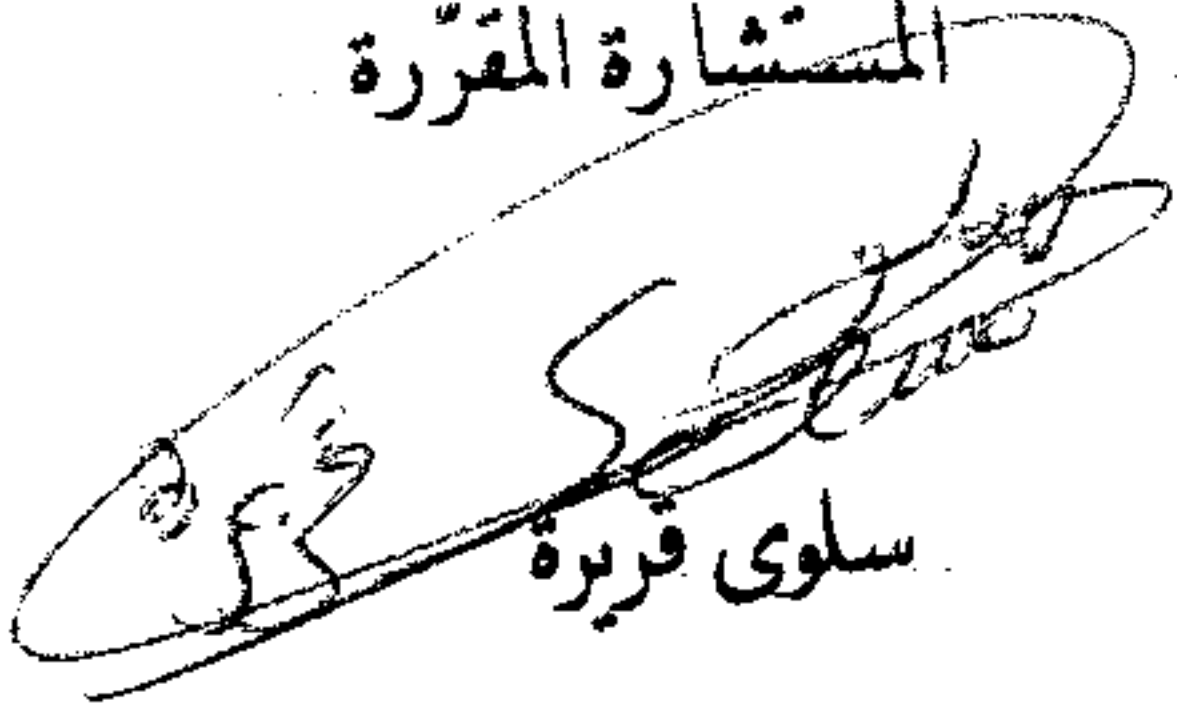 المستشارة المقرّرة
سلوى قريرة